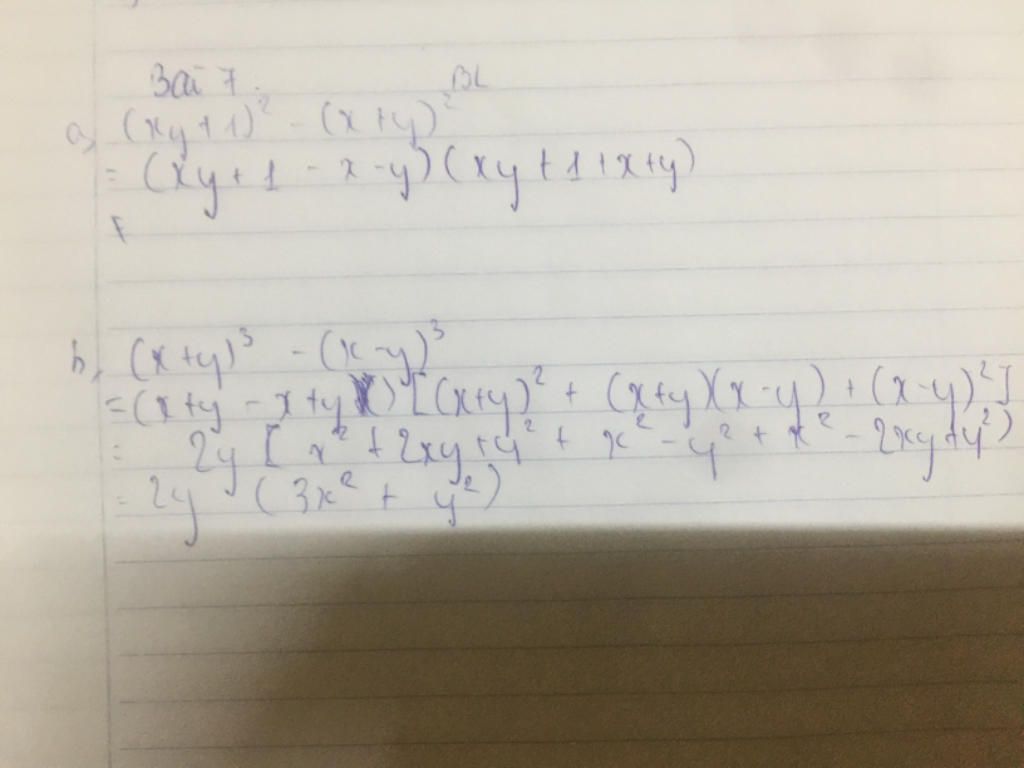 Bài 7. BL
a, (xy+1)² - (x+y)²
= (xy+1 - x-y)(xy+1+x+y)
b, (x+y)³ - (x-y)³
= (x+y - x+y) [(x+y)² + (x+y)(x-y) + (x-y)²]
= 2y [ x² + 2xy+y² + x² - y² + x² - 2xy+y²)
= 2y (3x² + y²)